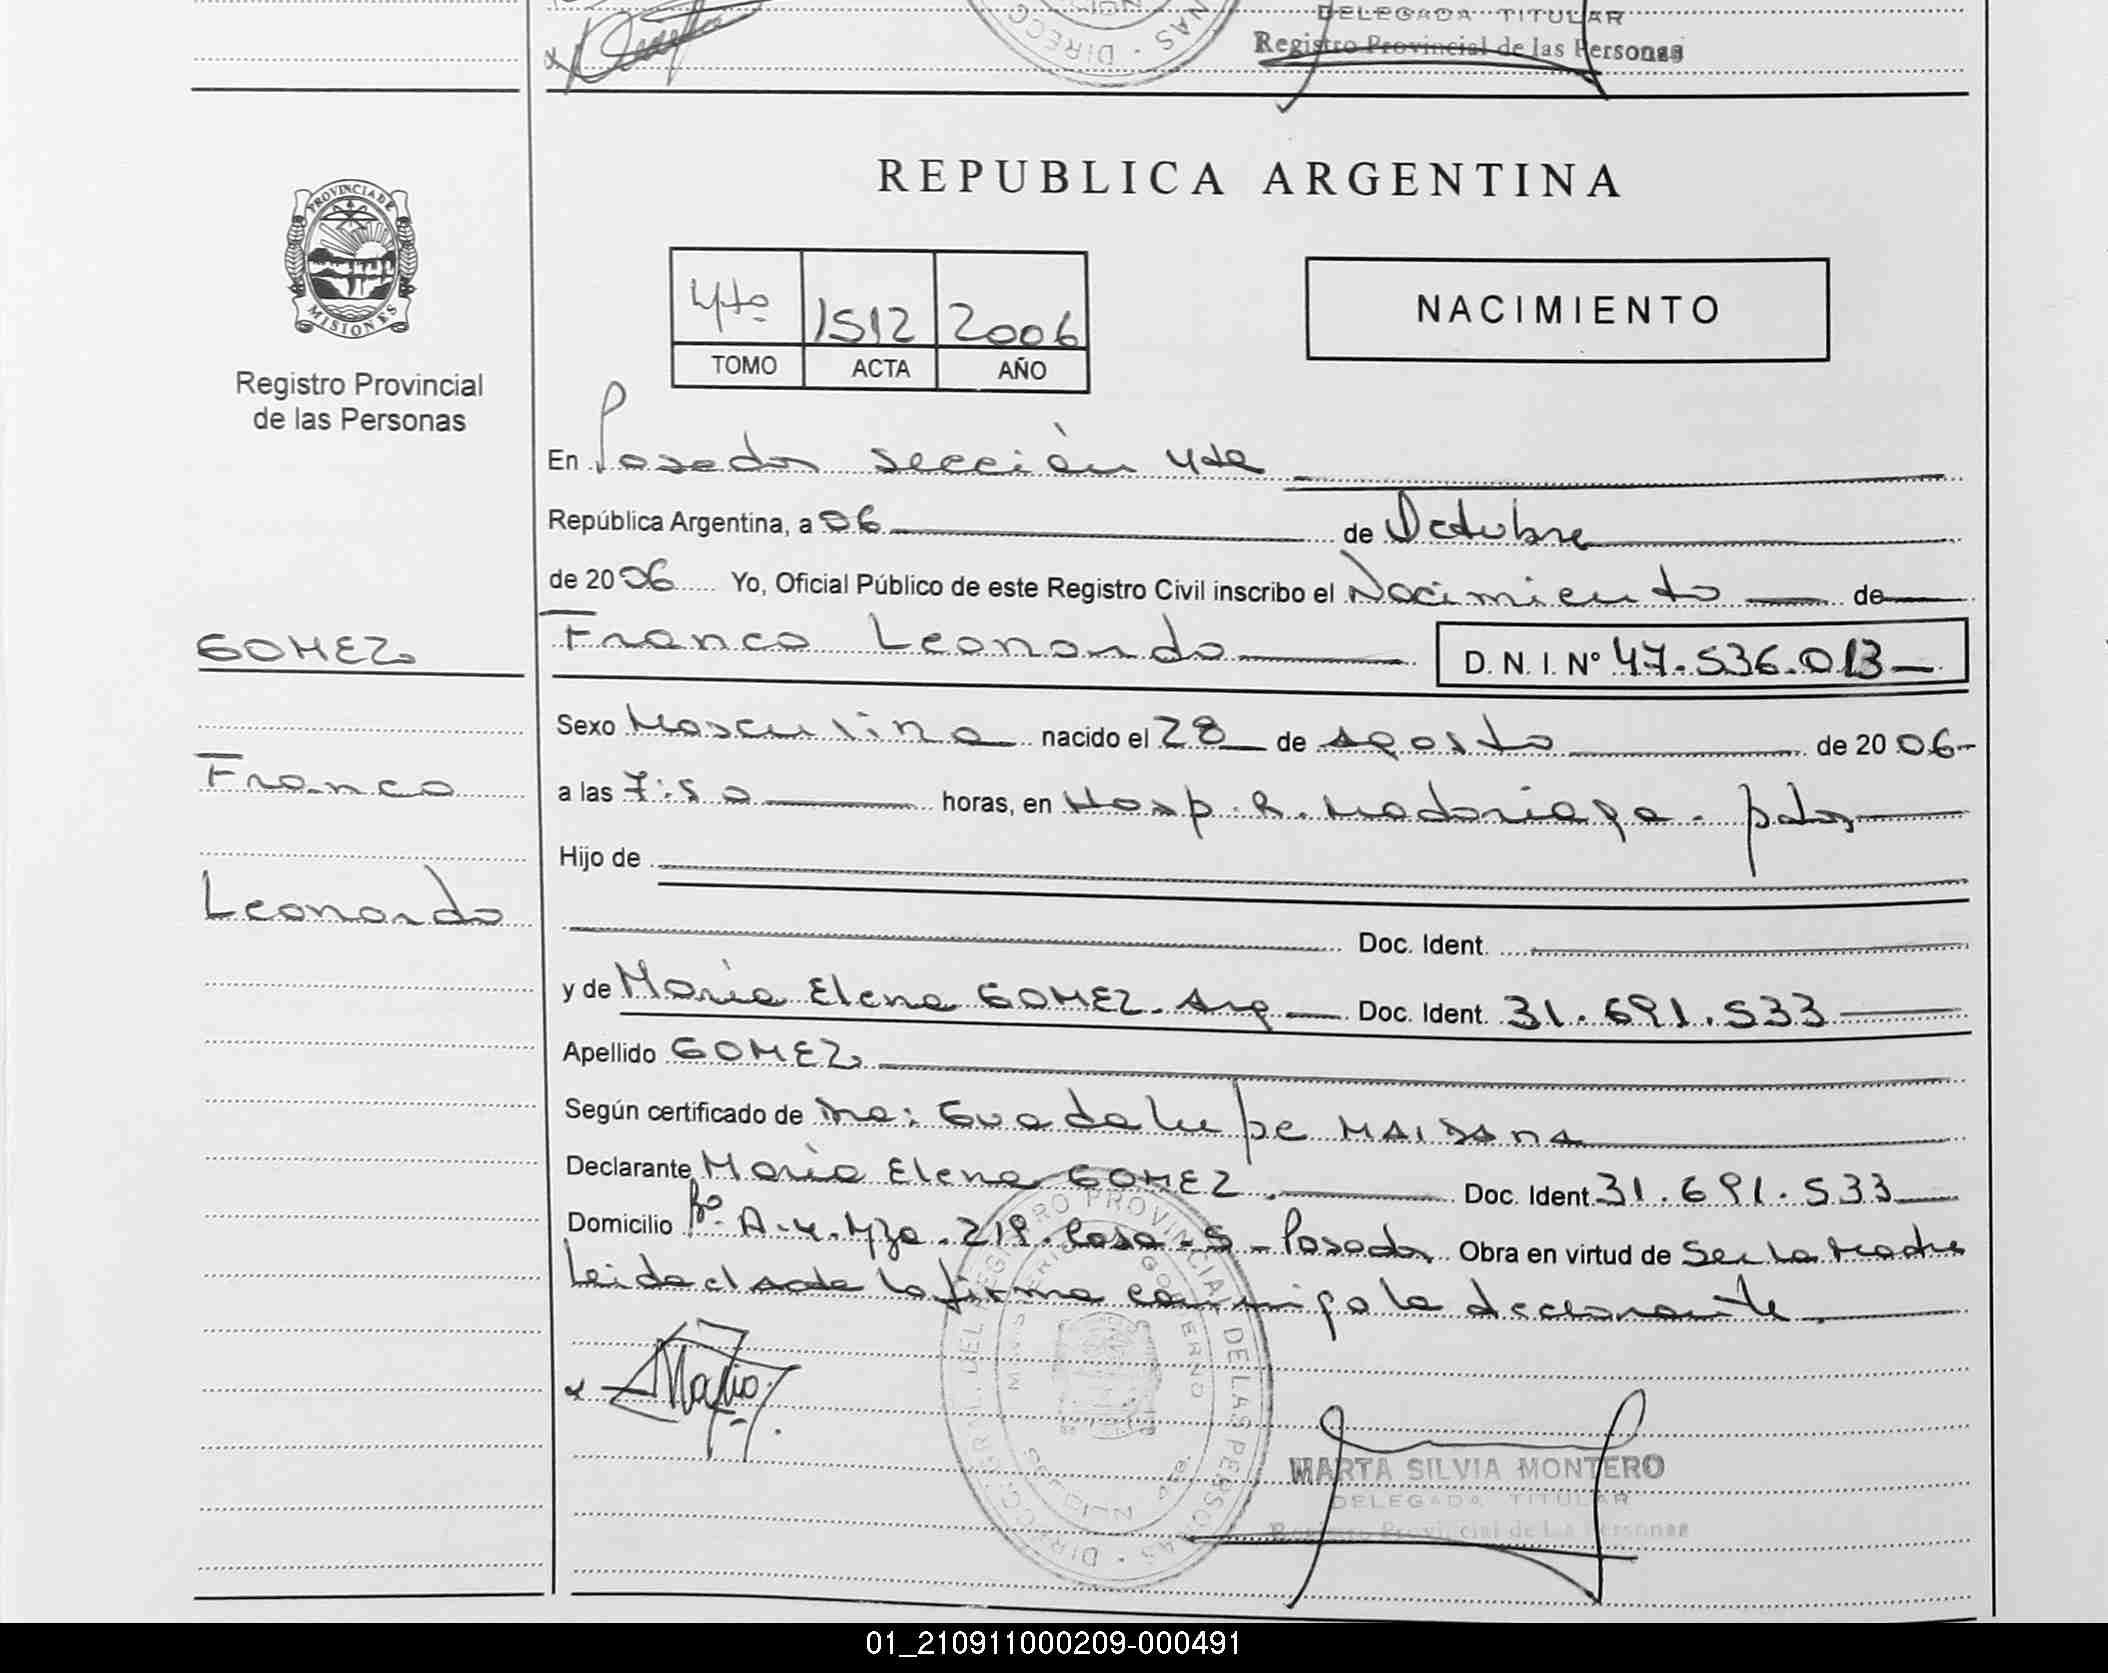 DELEGADA TITULAR
Registro Provincial de las Personas
REPUBLICA ARGENTINA
PROVINCIA DE
MISIONES
Registro Provincial
de las Personas
4to 1512 2006
TOMO ACTA AÑO
NACIMIENTO
En Posadas sección 4ta
República Argentina, a 06 de Octubre
de 2006 Yo, Oficial Público de este Registro Civil inscribo el Nacimiento de
GOMEZ
Franco Leonardo D. N. I. Nº 47.536.013
Sexo Masculino nacido el 28 de Agosto de 2006
Franco
a las 7:50 horas, en Hosp. R. Madariaga. pdas
Hijo de
Leonardo
Doc. Ident.
y de María Elena GOMEZ. Arg Doc. Ident. 31.691.533
Apellido GOMEZ
Según certificado de Dra: Guadalupe MAIDANA
Declarante María Elena GOMEZ. Doc. Ident. 31.691.533
Domicilio Bº. A-4. Mza. 219. Casa - 5 - Posadas Obra en virtud de Ser la Madre
Leida el acta la firma conmigo la declarante.
DIRECC. GRAL. DEL REGISTRO PROVINCIAL DE LAS PERSONAS
MINISTERIO GOBIERNO
MARTA SILVIA MONTERO
DELEGADA TITULAR
Registro Provincial de las Personas
01_210911000209-000491